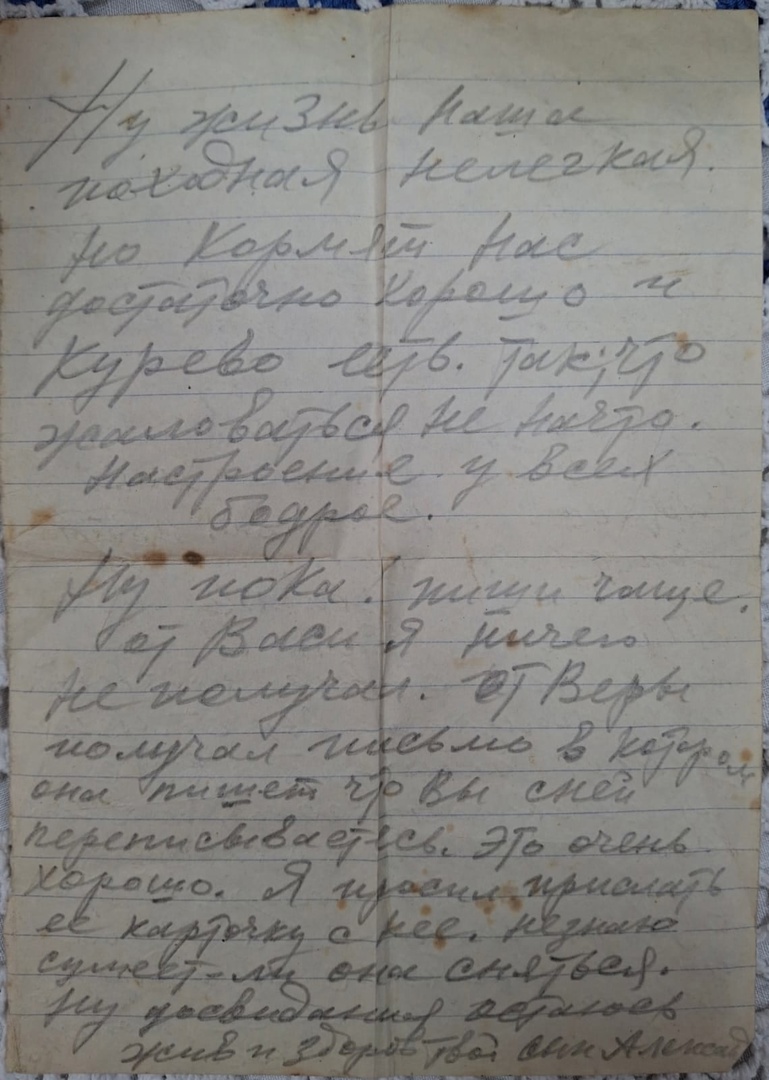 Ну жизнь наша
походная нелегкая.
но кормят нас
достаточно хорошо и
курево есть. так, что
жаловаться не начто.
настроение у всех
бодрое.
Ну пока! пиши чаще.
от Васи я ничего
не получал. от Веры
получал письмо в котором
она пишет что Вы сней
переписываетесь. это очень
хорошо. Я просил прислать
ее карточку с нее. незнаю
сумеет-ли она сняться.
ну досвидания остаюсь
жив и здоров твой сын Александ